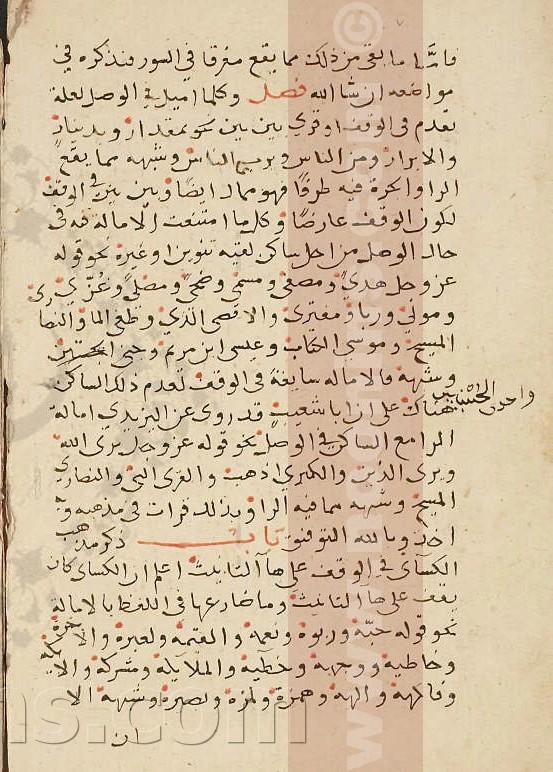 فامّا ما بقى من ذلك مما يقع مفرقا في السور فنذكره في
مواضعه ان شا الله فصل وكلما اميل في الوصل لعلة
تعدم في الوقف او قرى بين بين نحو بمقدار وبدينار
والابرار ومن الناس وبرب الناس وشبهه مما يقع
الرا والجرة فيه طرفًا فهو ممال ايضًا وبين بين في الوقف
لكون الوقف عارضًا وكل ما امتنعت الاماله فيه في
حال الوصل من اجل ساكن لقيه تنوين او غيره نحو قوله
عز وجل هدىً ومصفى ومسمى وضحىً ومصلىً وغُزّىً
ومولى وربا ومفترى والاقصى الذي وطغى الما والنصارى
المسيح وموسى الكتاب وعيسى ابن مريم وجنى الجنتين
وشبهه فالاماله سايغة في الوقف لعدم ذلك الساكن
واحدى الحسنيين
هناك على ان ابا شعيب قد روى عن اليزيدي امالة
الرا مع الساكن في الوصل نحو قوله عز وجل يرى الله
ويرى الذين والكبرى اذهب والقرى التي والنصارى
المسيح وشبهه مما فيه الرا وبذلك قرات في مذهبه وبه
اخذ وبالله التوفيق باب ذكر مذهب
الكسآى في الوقف على هآ التانيث اعلم ان الكسآى كان
يقف على هآ التانيث وما ضارعها في اللفظ بالامالة
نحو قوله حبّه وربوة ونعمه والقيمه ولعبرة والاخرة
وخاطيه ووجهة وخطيه والملايكه ومشركة والايكه
وفاكهة والهه وهمزة ولمزه وبصيره وشبهه الا
ان
www.
ns.com